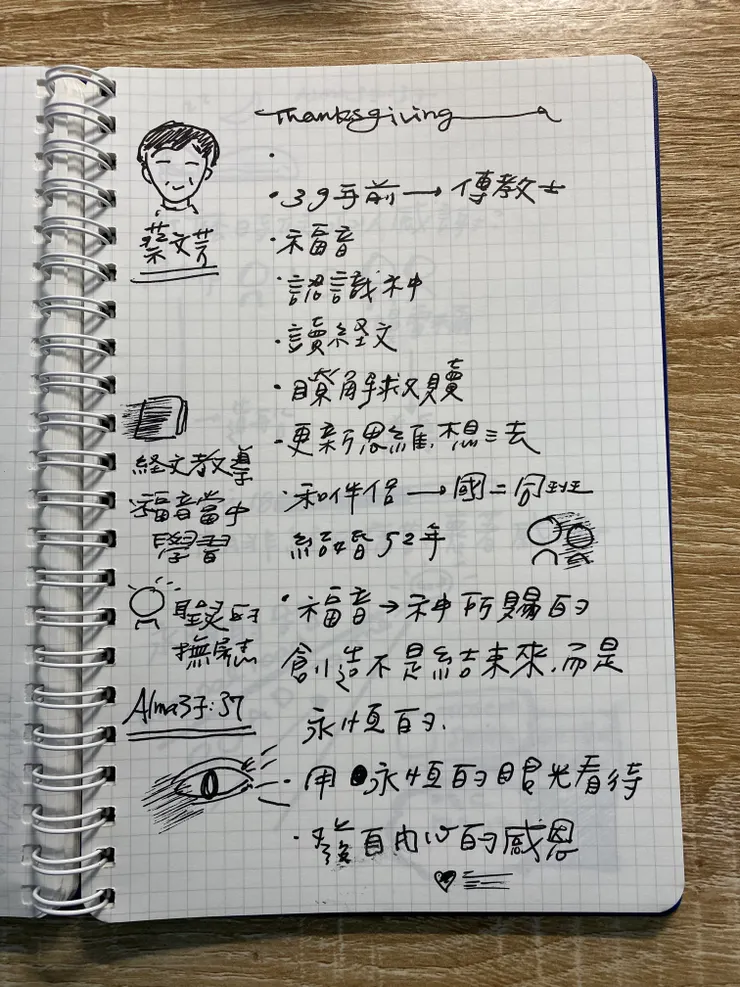 Thanksgiving
蔡文芳
·
·39年前→傳教士
·福音
·認識神
·讀經文
·瞭解救贖
·更新思維.想法
·和伴侶→國二同班
結婚52年
·福音→神所賜的
創造不是結束來.而是
永恆的.
·用永恆的眼光看待
·發自內心的感恩
經文教導
福音當中
學習
聖靈的
撫慰
Alma子:37